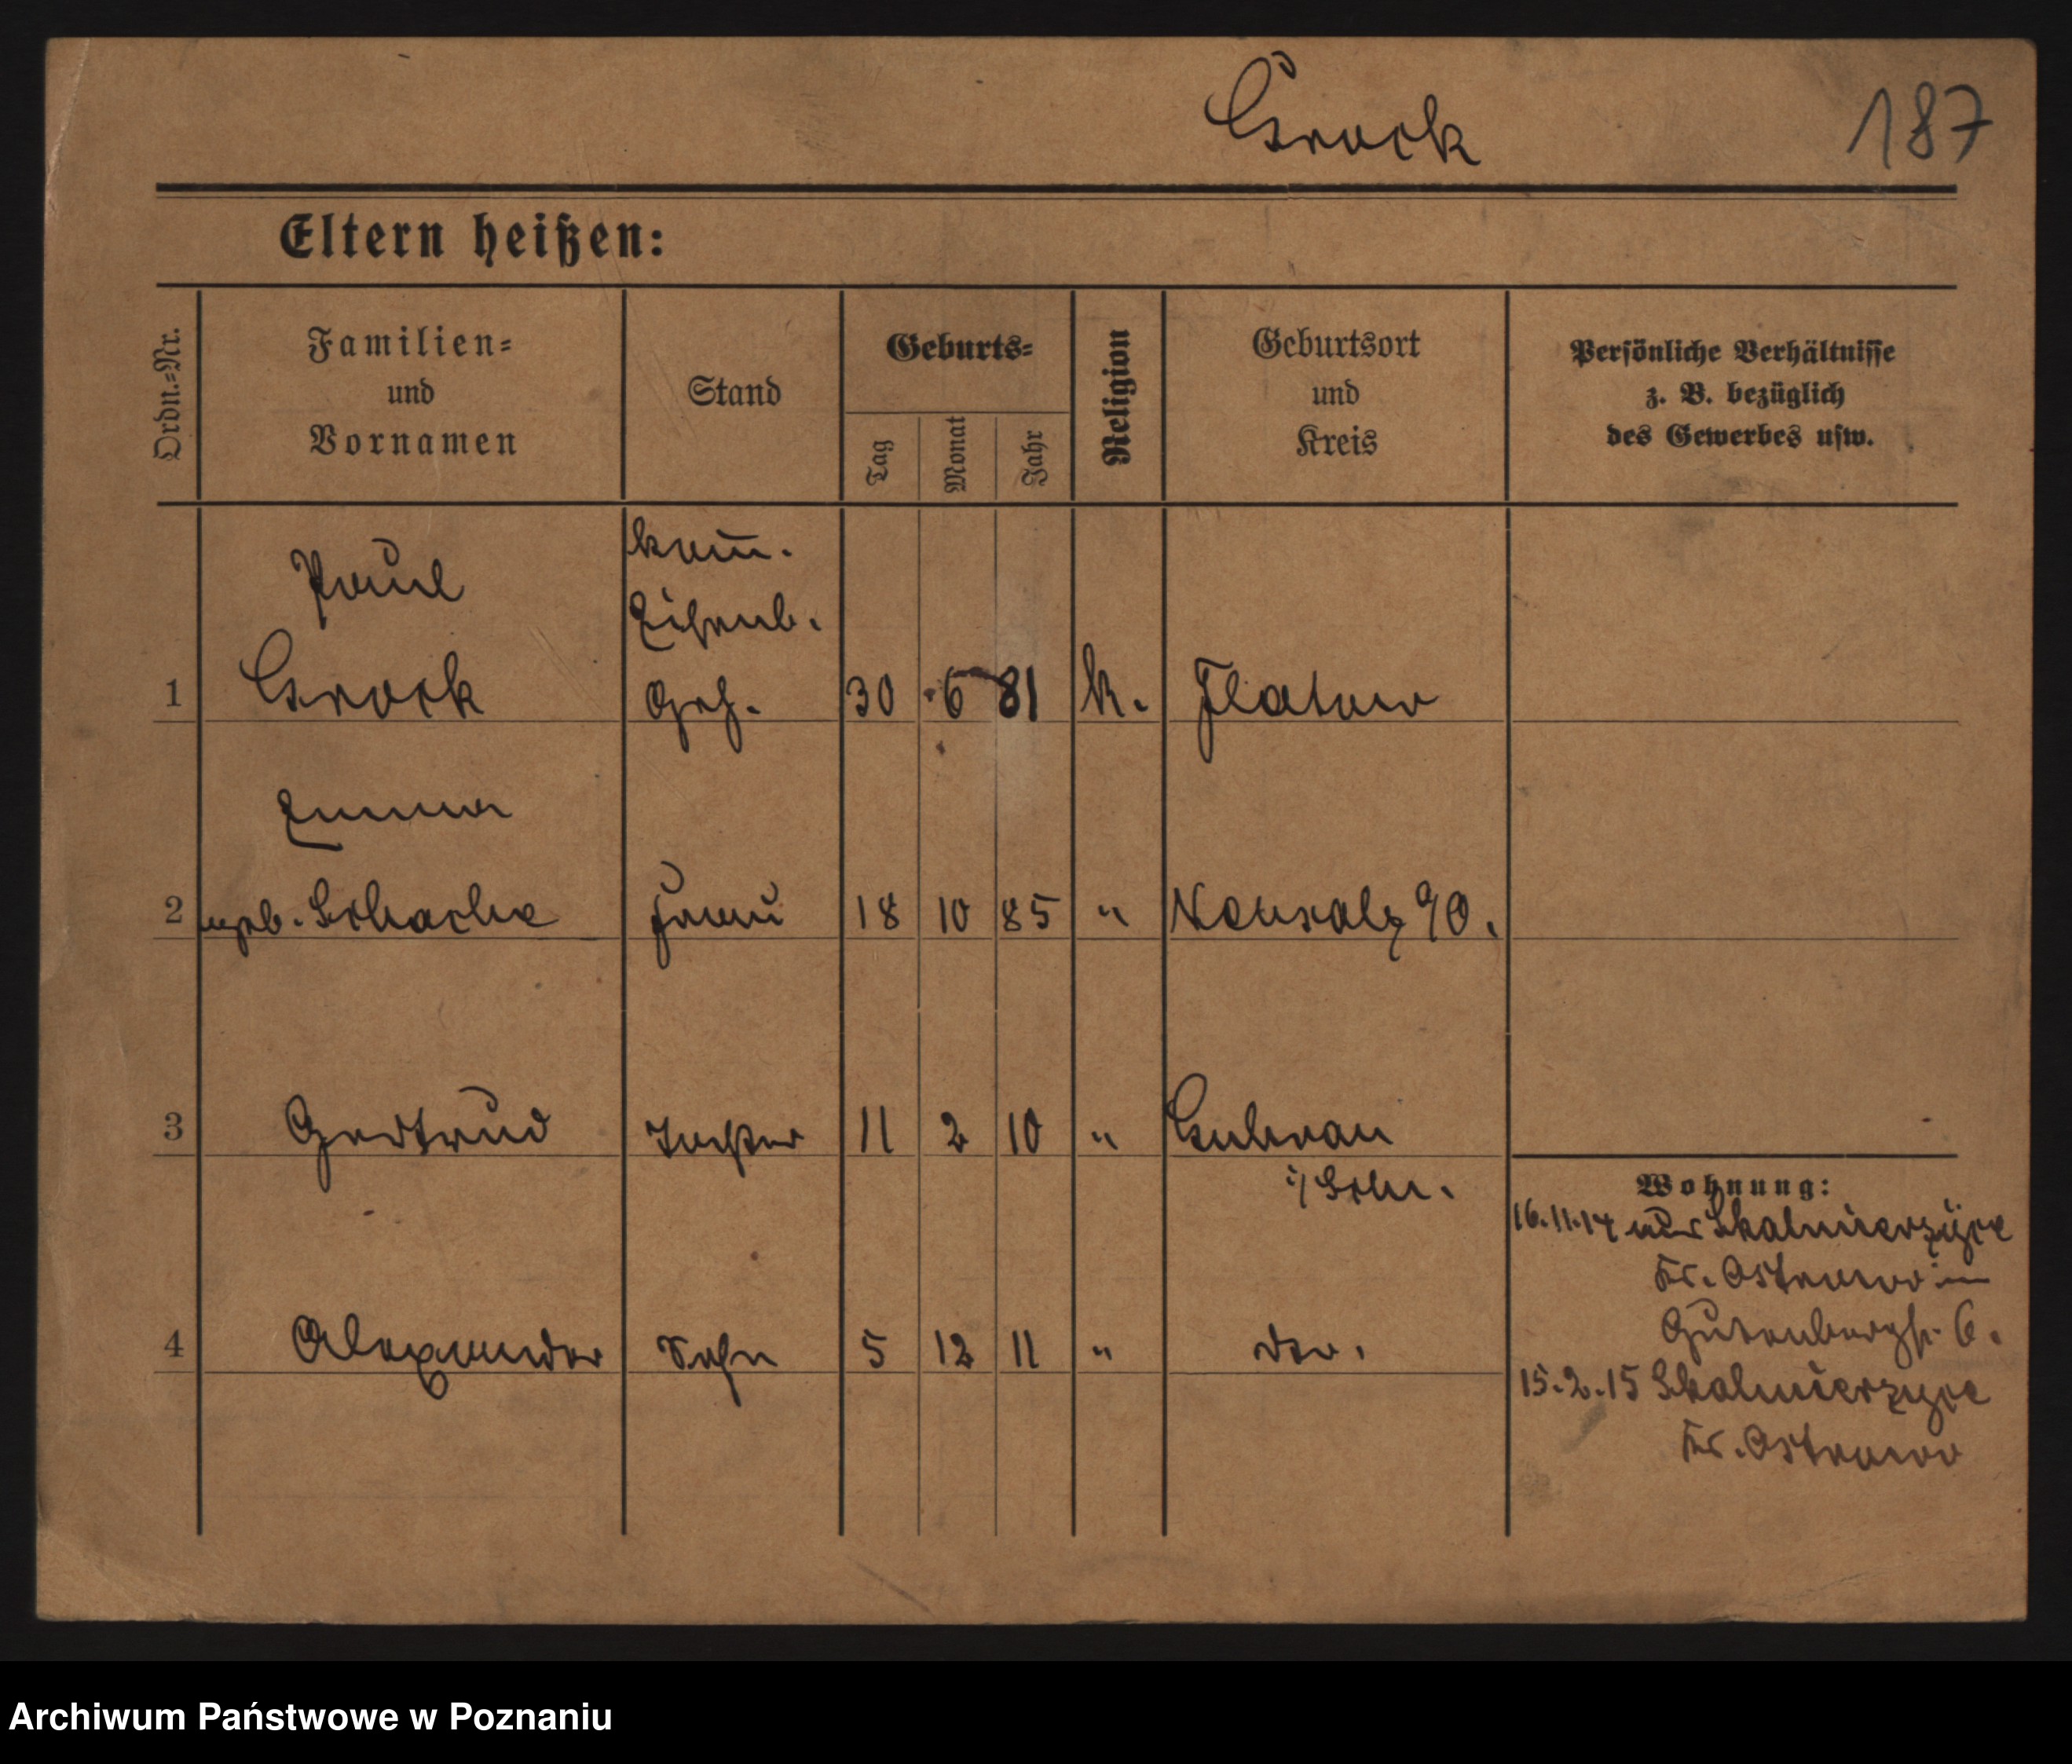 Grock
187
Eltern heißen:
Ordn.=Nr.
Familien=
und
Vornamen
Stand
Geburts=
Tag
Monat
Jahr
Religion
Geburtsort
und
Kreis
Persönliche Verhältnisse
z. B. bezüglich
des Gewerbes usw.
Paul
kom̄.
Eisenb.
1 Grock Geh. 30 6 81 k. Flatow
Emma
2 geb. Schache Frau 18 10 85 " Neusalz a/O.
3 Gertrud Tochter 11 2 10 " Guhrau
i/Schl.
Wohnung:
16.11.14 Skalmierzyce
Kr. Ostrowo in
Gutenbergstr. 6.
4 Alexander Sohn 5 12 11 " dto.
15.2.15 Skalmierzyce
Kr. Ostrowo
Archiwum Państwowe w Poznaniu